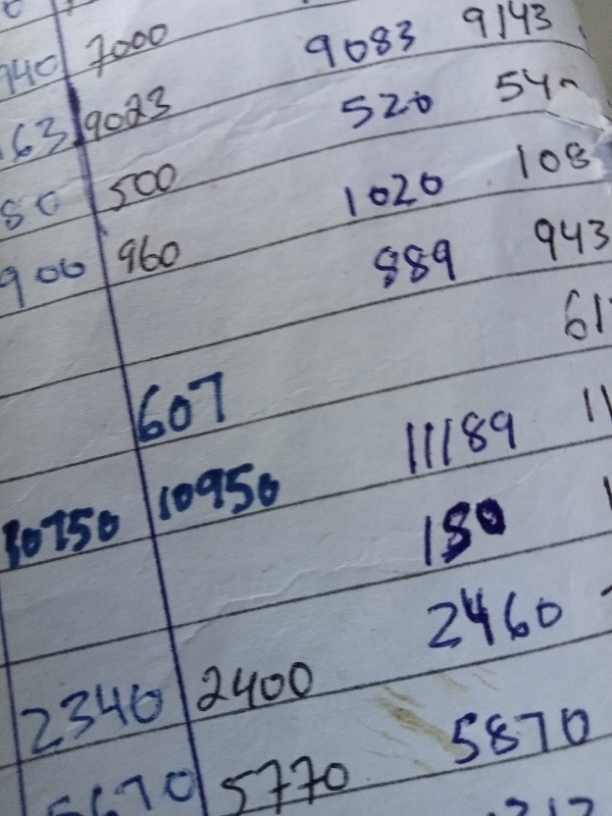 7000 9083 9143
63 9023 520
80 500 1020 108
900 960 889 943
607 61
10750 10950 11189 11
180
2340 2400 2460
5670 5770 5870